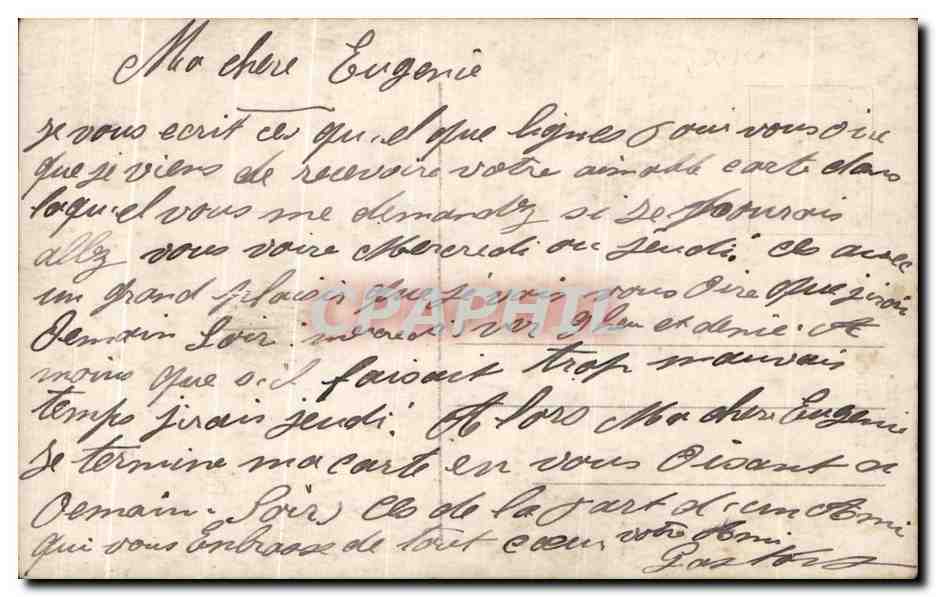 Ma chere Eugenie
je vous ecrit ces quelque lignes pour vous dire
que je viens de recevoire votre aimable carte dans
laquel vous me demandez si je pourais
allez vous voire Mercredi ou jeudi. ces avec
un grand plaisir que je vais vous dire que j'irai
Demain Soir mercredi vers 9 heu et demie. A
moins que s'il faisait trop mauvais
temps j'irais jeudi. Alors Ma chere Eugenie
je termine ma carte en vous disant a
Demain Soir, ces de la part d'un Ami
qui vous Enbrasse de tout coeur votre Ami
CPAPHIL